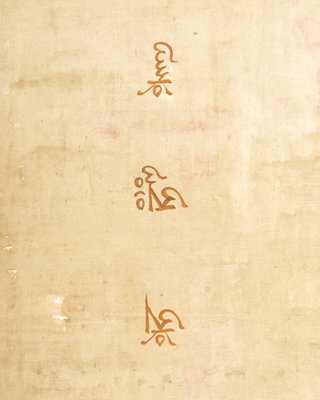 ཨོཾ ཨཱཿ ཧཱུྃ